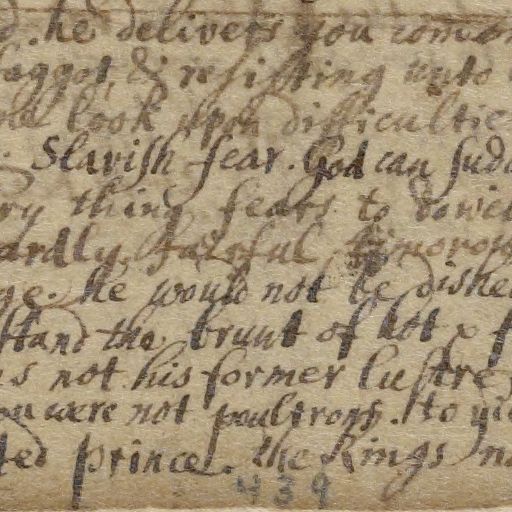 he delivers you
faggot, & resisting unto
look upon difficultie
Slavish fear. God can sud
ry thing fears to
ardly, fearful, timorous
ge. he would not be dishe
stand the brunt of hot x f
s not his former lustre
ou were not poultrons. to yi
ted prince. the Kings
439